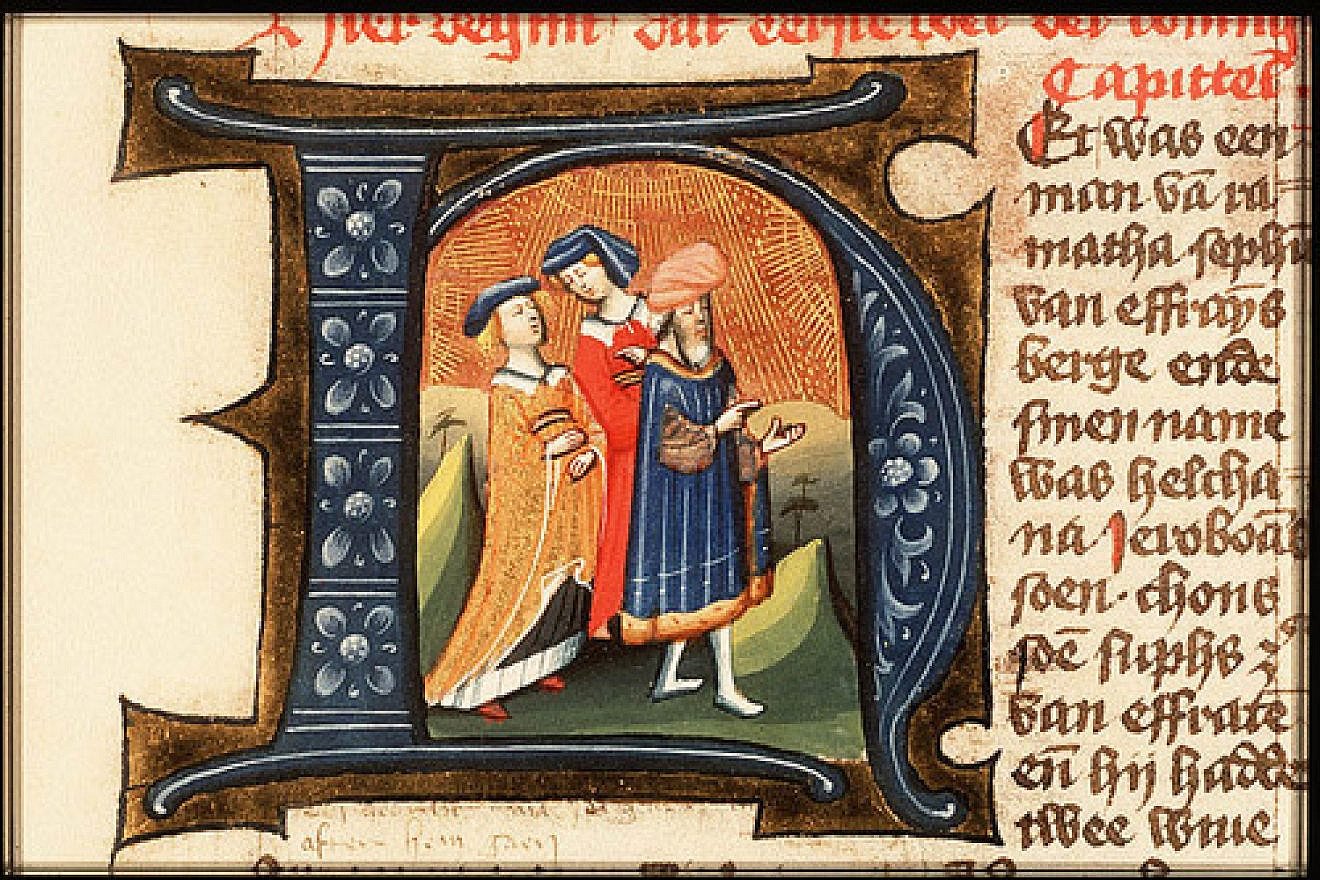 Hier begint dat eerste boec der coning
Capittel.
Et was een
man vā ra
matha sophī
van effrayms
berge ende
sinen name
was helcha
na Jeroboās
soen. chons
soē suphs
van effrate
eñ hij hadde
twee wiue
after hem